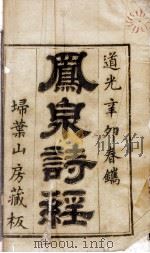 道光辛卯春鐫
鳳泉詩經
埽葉山房藏板
www.toutoushu.com